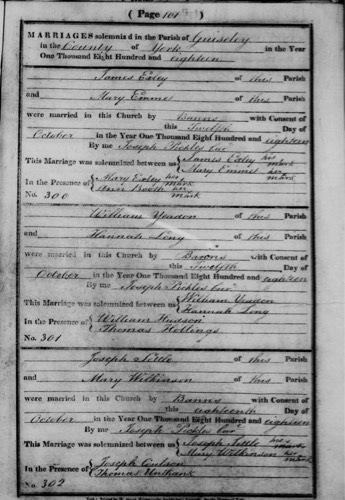 ( Page 101 )
MARRIAGES solemnized in the Parish of Guiseley
in the County of York in the Year
One Thousand Eight Hundred and eighteen
James Exley of this Parish
and Mary Emmet of this Parish
were married in this Church by Banns with Consent of
this Twelfth Day of
October in the Year One Thousand Eight Hundred and eighteen
By me Joseph Pickles Cur
This Marriage was solemnized between us James Exley his mark
Mary Emmet her mark
In the Presence of Mary Exley her mark
Ann Booth her mark
No. 300
William Yeadon of this Parish
and Hannah Long of this Parish
were married in this Church by Banns with Consent of
this Twelfth Day of
October in the Year One Thousand Eight Hundred and eighteen
By me Joseph Pickles Cur
This Marriage was solemnized between us William Yeadon
Hannah Long
In the Presence of William Hudson
Thomas Hollings
No. 301
Joseph Settle of this Parish
and Mary Wilkinson of this Parish
were married in this Church by Banns with Consent of
this eighteenth Day of
October in the Year One Thousand Eight Hundred and eighteen
By me Joseph Pickles Cur
This Marriage was solemnized between us Joseph Settle his mark
Mary Wilkinson her mark
In the Presence of Joseph Coulson
Thomas Unthank
No. 302